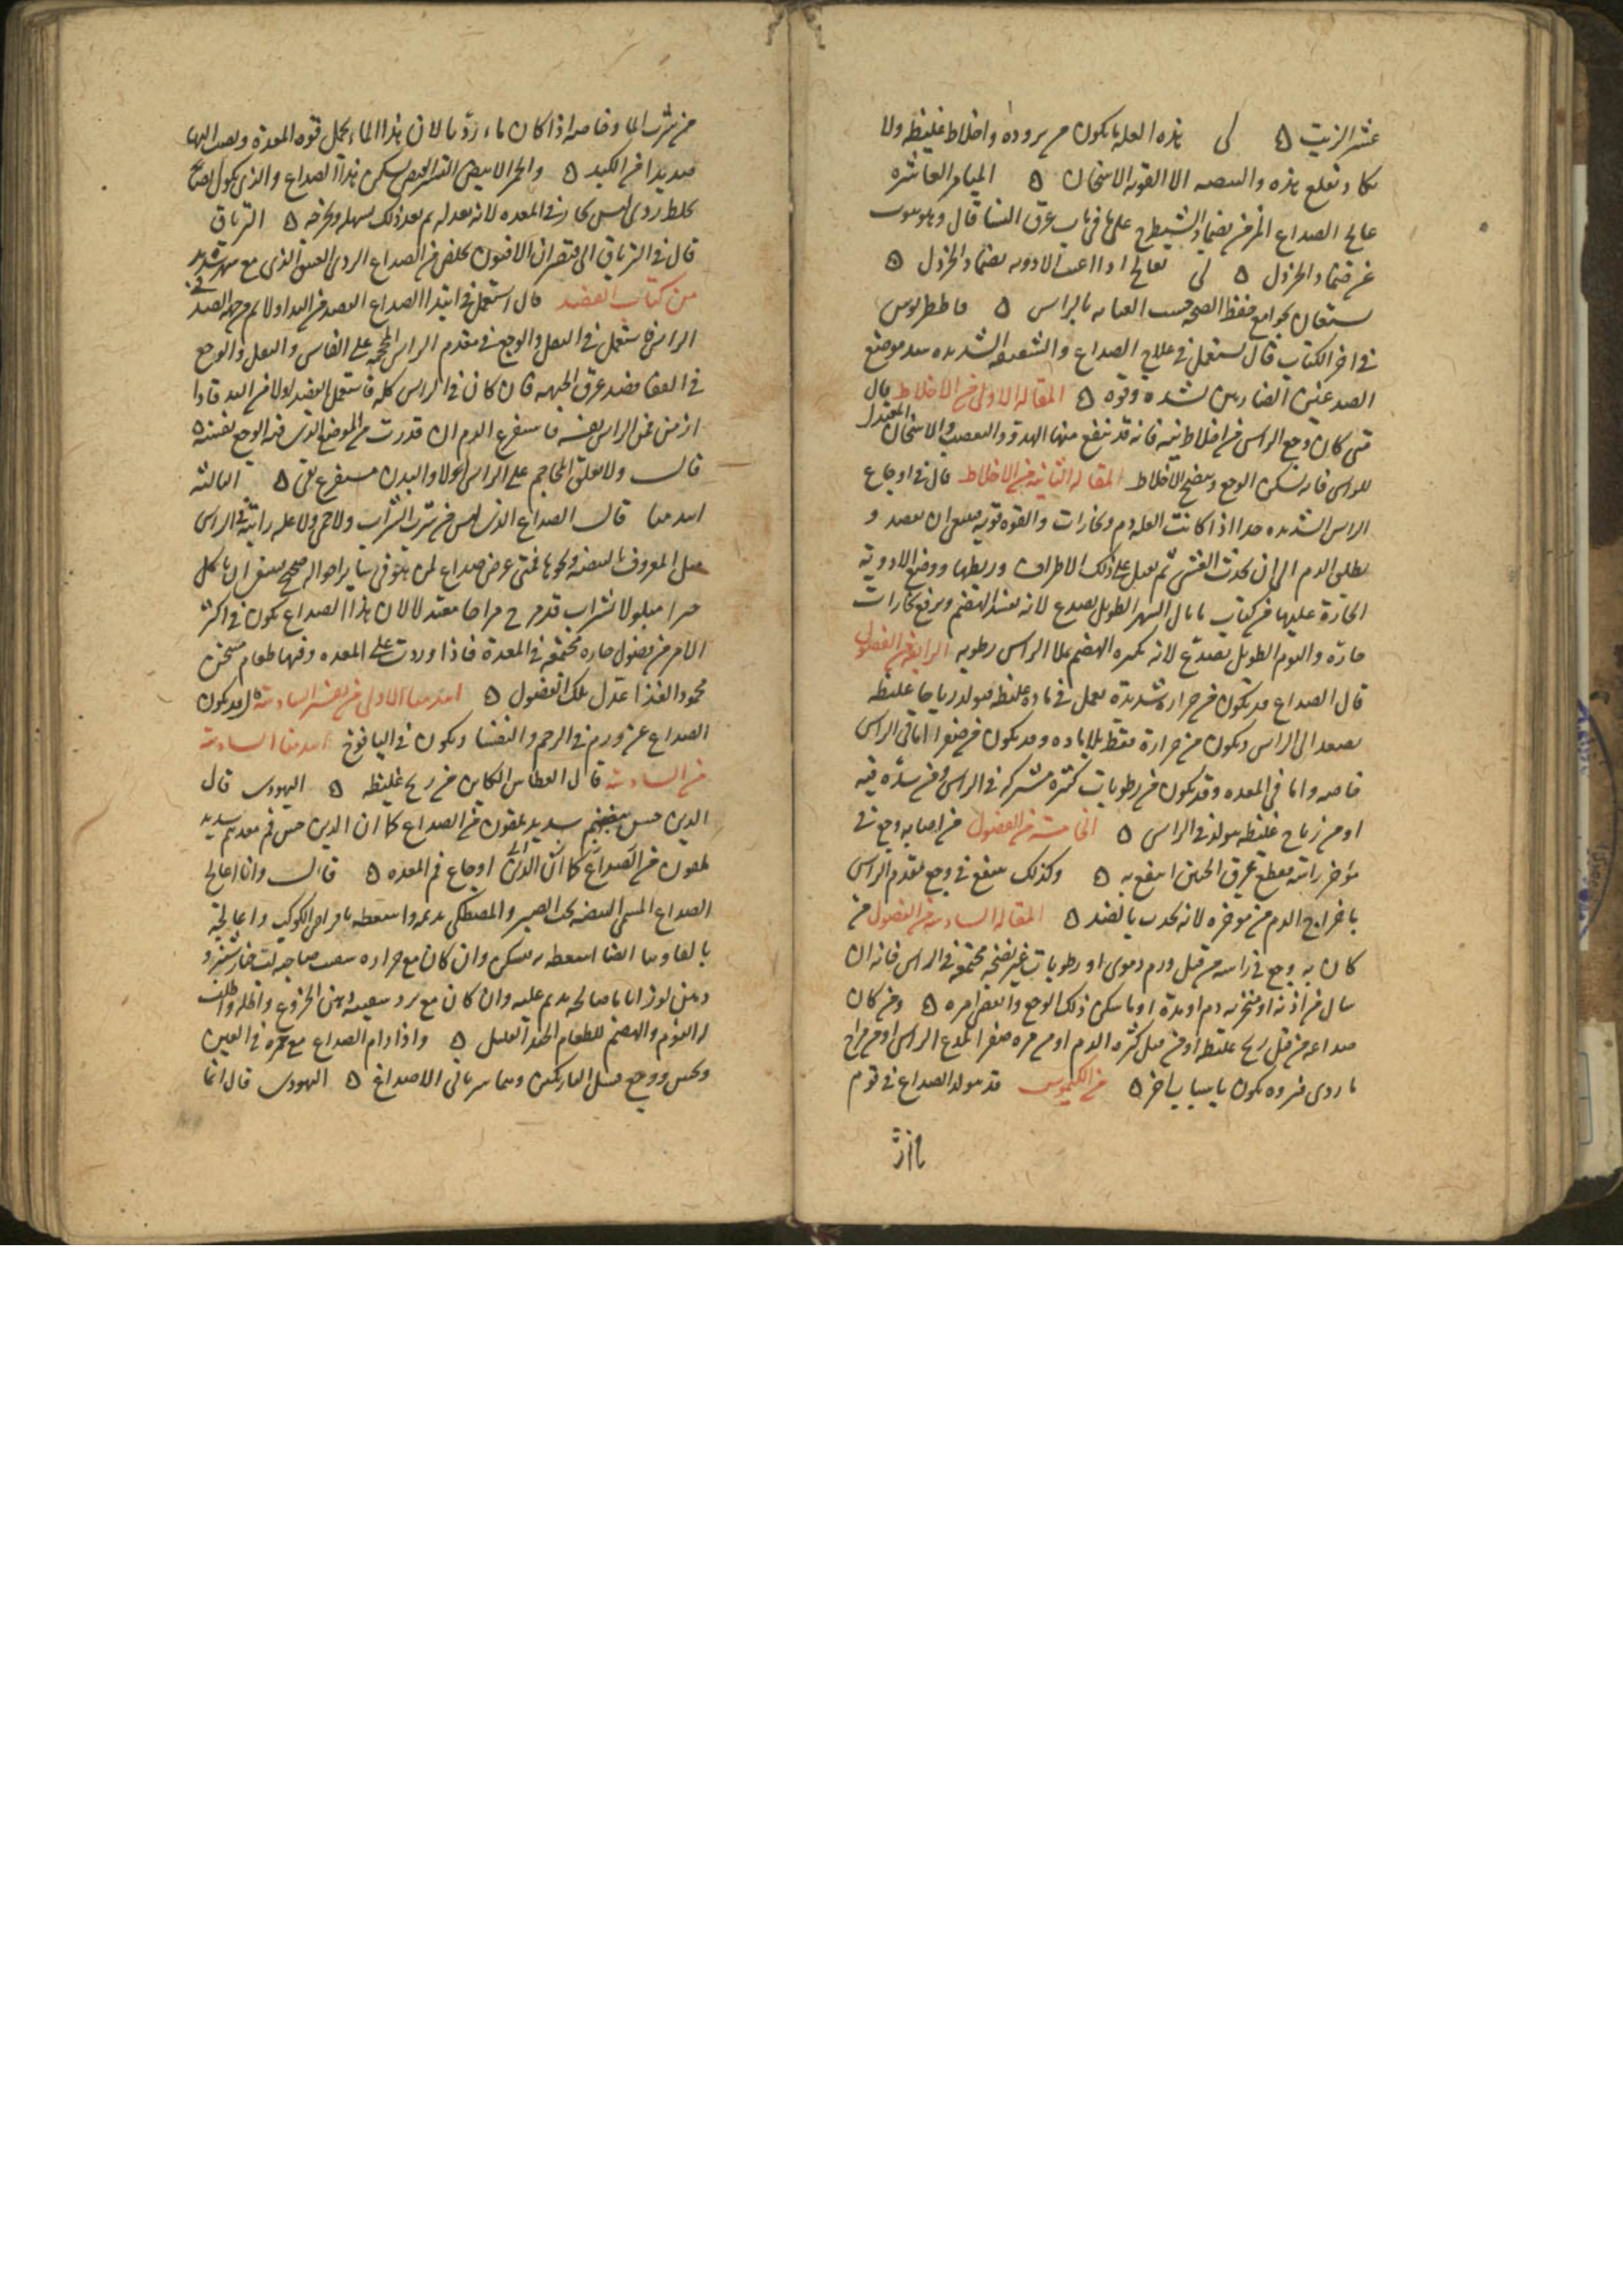 عشر الزيت ه لى هذه العلة تكون من برودة واخلاط غليظة ولا
يكاد يقلع هذه والبيضة الا القوية الاسخان ه الميامر العاشرة
عالج الصداع المزمن بضماد الشيطرج على ما فى باب عرق النسا قال وهو
من ضماد الخردل ه لى يعالج اذا اعيت الادوية بضماد الخردل ه
يستعان بجوامع حفظ الصحة حسب العناية بالراس ه
فى اخر الكتاب قال يستعمل فى علاج الصداع والشقيقة الشديدة بعد موضع
الصدغين لشده وقوه ه المقالة الاولى من الاخلاط قال
متى كان وجع الراس من اخلاط نية فانه قد ينتفع منها الهدو والتعصيب والاسخان المعتدل
للراس فانه يسكن الوجع وينضج الاخلاط المقالة الثانية من الاخلاط قال فى اوجاع
الراس الشديدة جدا اذا كانت العلة دم وبخارات والقوة قوية فينبغى ان يفصد و
يطلق الدم الى ان يحدث الغشى ثم على ذلك الاطراف وربطها ووضع الادوية
الحارة عليها من كتاب قال السهر الطويل يصدع لانه يفسد الهضم ويرفع بخارات
حارة والنوم الطويل يصدع لانه بكثرة الهضم يملا الراس رطوبة الرابعة من الفصول
قال الصداع قد يكون من حرارة شديدة تعمل فى مادة غليظة فيولد رياحا غليظة
يصعد الى الراس ويكون من حرارة فقط بلا مادة وقد يكون من صفرا اما فى الراس
خاصة واما فى المعدة وقد يكون من رطوبات كثيرة مشتركة فى الراس ومن سدة فيه
او من رياح غليظة يتولد فى الراس ه الخامسة من الفصول من اصابه وجع فى
مؤخر راسه فقطع عرق الجبين انتفع به ه وكذلك ينتفع فى وجع مقدم الراس
باخراج الدم من مؤخره لانه يجذب بالضد ه المقالة السادسة من الفصول من
كان به وجع فى راسه من قبل ورم دموى او رطوبات غير نضجة مجتمعة فى الراس فانه ان
سال من اذنه او منخريه دم او مدة او ما سكن ذلك الوجع وانقضى امره ه ومن كان
صداعه من قبل ريح غليظة او من قبل كثرة الدم او من مرة صفرا تلذع الراس او من مزاج
ما ردى فبروه يكون باسباب اخر ه من الكيموس قد يتولد الصداع فى قوم
من شرب الما وخاصة اذا كان ماء رديا لان هذا الماء يحل قوة المعدة ويصب اليها
صديدا من الكبد ه والخمر الابيض القابض يسكن هذا الصداع والذى يكون
بخلط ردى ليس بحار فى المعدة لانه يعدله ثم بعد ذلك يسهله ويخرجه ه الترياق
قال فى الترياق الى قيصر ان الافيون يخلص من الصداع الردى العتيق الذى مع سهر شديد
من كتاب الفصد قال استعمل فى ابتدا الصداع الفصد من اليد اولا ثم من جهة الضد فى
الراس فاستعمل فى الثقل والوجع فى مقدم الراس المحجمة على الفاس والثقل والوجع
فى القفا فصد عرق الجبهة فان كان فى الراس كله فاستعمل الفصد اولا من اليد فاذا
ازمن فمن الراس نفسه فاستفرغ الدم ان قدرت من الموضع الذى فيه الوجع نفسه ه
قال ولا تعلق المحاجم على الراس اولا والبدن مستفرغ نقى ه الثالثة
ابيذيميا قال الصداع الذى ليس من شرب الشراب ولا حمى ولا علة راتبة فى الراس
مثل المعروف بالبيضة ونحوها فمتى عرض صداع لمن هو فى ساير احواله صحيح فينبغى ان ياكل
خبزا مبلولا بشراب قد مزج مزاجا معتدلا لان هذا الصداع يكون فى اكثر
الامر من فضول حارة مجتمعة فى المعدة فاذا وردت على المعدة وفيها طعام مسخن
محمود الغذا عدل تلك الفضول ه ابيذيميا الاولى من تفسير السادسة قد يكون
الصداع عن ورم فى الرحم والنفسا ويكون فى اليافوخ ابيذيميا السادسة
من السادسة قال العطاس الكاين من ريح غليظة ه اليهودى قال
الذين حس بعضهم شديد يلقون من الصداع كما ان الذين حس فم معدتهم شديد
يلقون من اوجاع فم المعدة ه قال وانا اعالج
الصداع المسمى البيضة بحب الصبر والمصطكى يدمنه واسعطه باقراص الكوكب واعالجه
بالفاونيا ايضا اسعطه به يسكن وان كان مع حرارة سقيت صاحبه لب خيارشنبر و
دهن لوز اياما صالحة يدمن عليه وان كان مع برد سقيته دهن الخروع واطلب
له النوم والهضم للطعام الجيد القليل ه واذا دام الصداع مع حمرة فى العين
ونخس ووجع فسل شريانى الاصداغ ه اليهودى قال انما